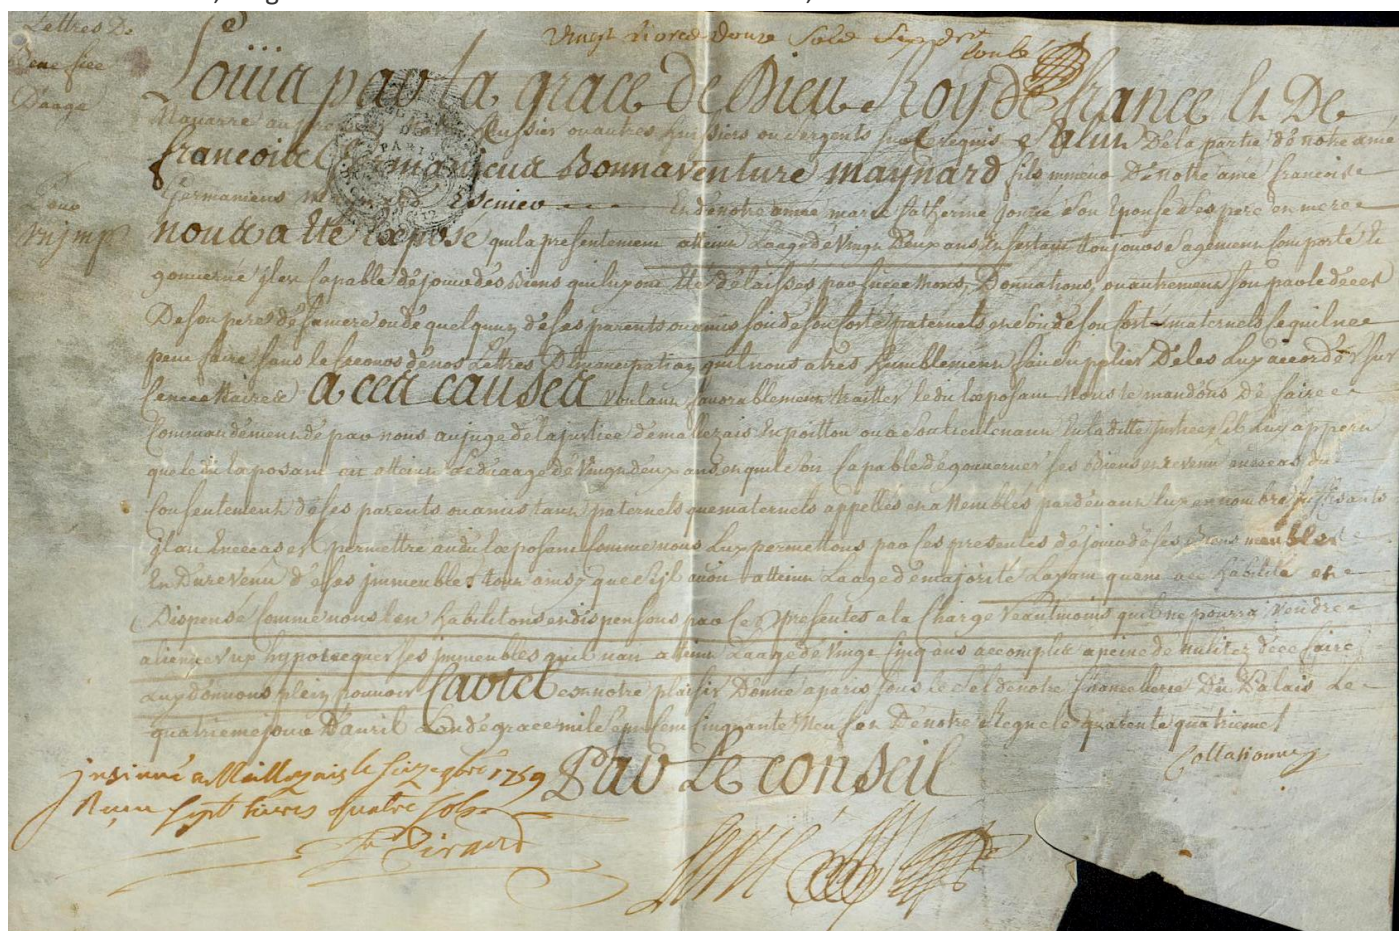 Lettres De
Benefice
D'aage
Vingt livres douze sols
Louis par la grace de Dieu Roy de france et De
Navarre au premier huissier ou autres huissiers ou sergents sur ce requis Salut De la partie de notre amé
francois Germanicus Bonnaventure maynard fils mineur De notre amé francois
Germanicus Escuier Et de notre amée marie Catherine son Epouse ses pere et mere
nous a eté Exposé qu'il a presentement atteint L'aage de Vingt Deux ans Et s'estant toujours sagement Comporté et
gouverné il est Capable de jouir des Biens qui luy ont eté delaissés par successions, Donnations, ou autrement soit par le deces
De son pere de sa mere ou de quelqu'un de ses parents ou amis soit de son costé paternels et soit de son costé maternels ce qu'il ne
peut faire sans le secours de nos Lettres D'emancipation qu'il nous a tres humblement fait supplier De les Luy accorder sur
ce necessaires a ces causes voulant favorablement traitter ledit Exposant Nous te mandons De faire
Commandement de par nous au juge de la justice de mallezais En poittou ou a son lieutenant En la ditte justice s'il Luy appert
que ledit Exposant ait atteint Led. aage de Vingt deux ans et qu'il soit Capable de gouverner ses Biens et revenu en ce cas du
Consentement de ses parents ou amis tant paternels que maternels appellés et assemblés pardevant luy en nombre suffisants
il ait En ce cas et permettre audit Exposant Comme nous Luy permettons par ces presentes de jouir de ses Biens meubles
Et Du revenu de ses immeubles tout ainsy que s'il avoit atteint L'aage de majorité L'ayant quant a ce habilité et
Dispensé Comme nous l'en habilitons et dispensons par ces presentes a la Charge Neantmoins qu'il ne pourra vendre
aliener ny hypotecquer ses immeubles qu'il n'ait atteint L'aage de Vingt Cinq ans accomplis a peine de nulitez de ce faire
Luy donnons plein pouvoir Car tel est notre plaisir Donné a paris sous le scel de notre Chancellerie Du Palais Le
quatrieme jour D'avril L'an de grace mil sept cent Cinquante Neuf et De notre Regne le quarente quatrieme
Collationné
Par Le conseil
insinué a Maillezais le seize 9bre 1759
Reçu sept livres quatre sols
Girard
PARIS